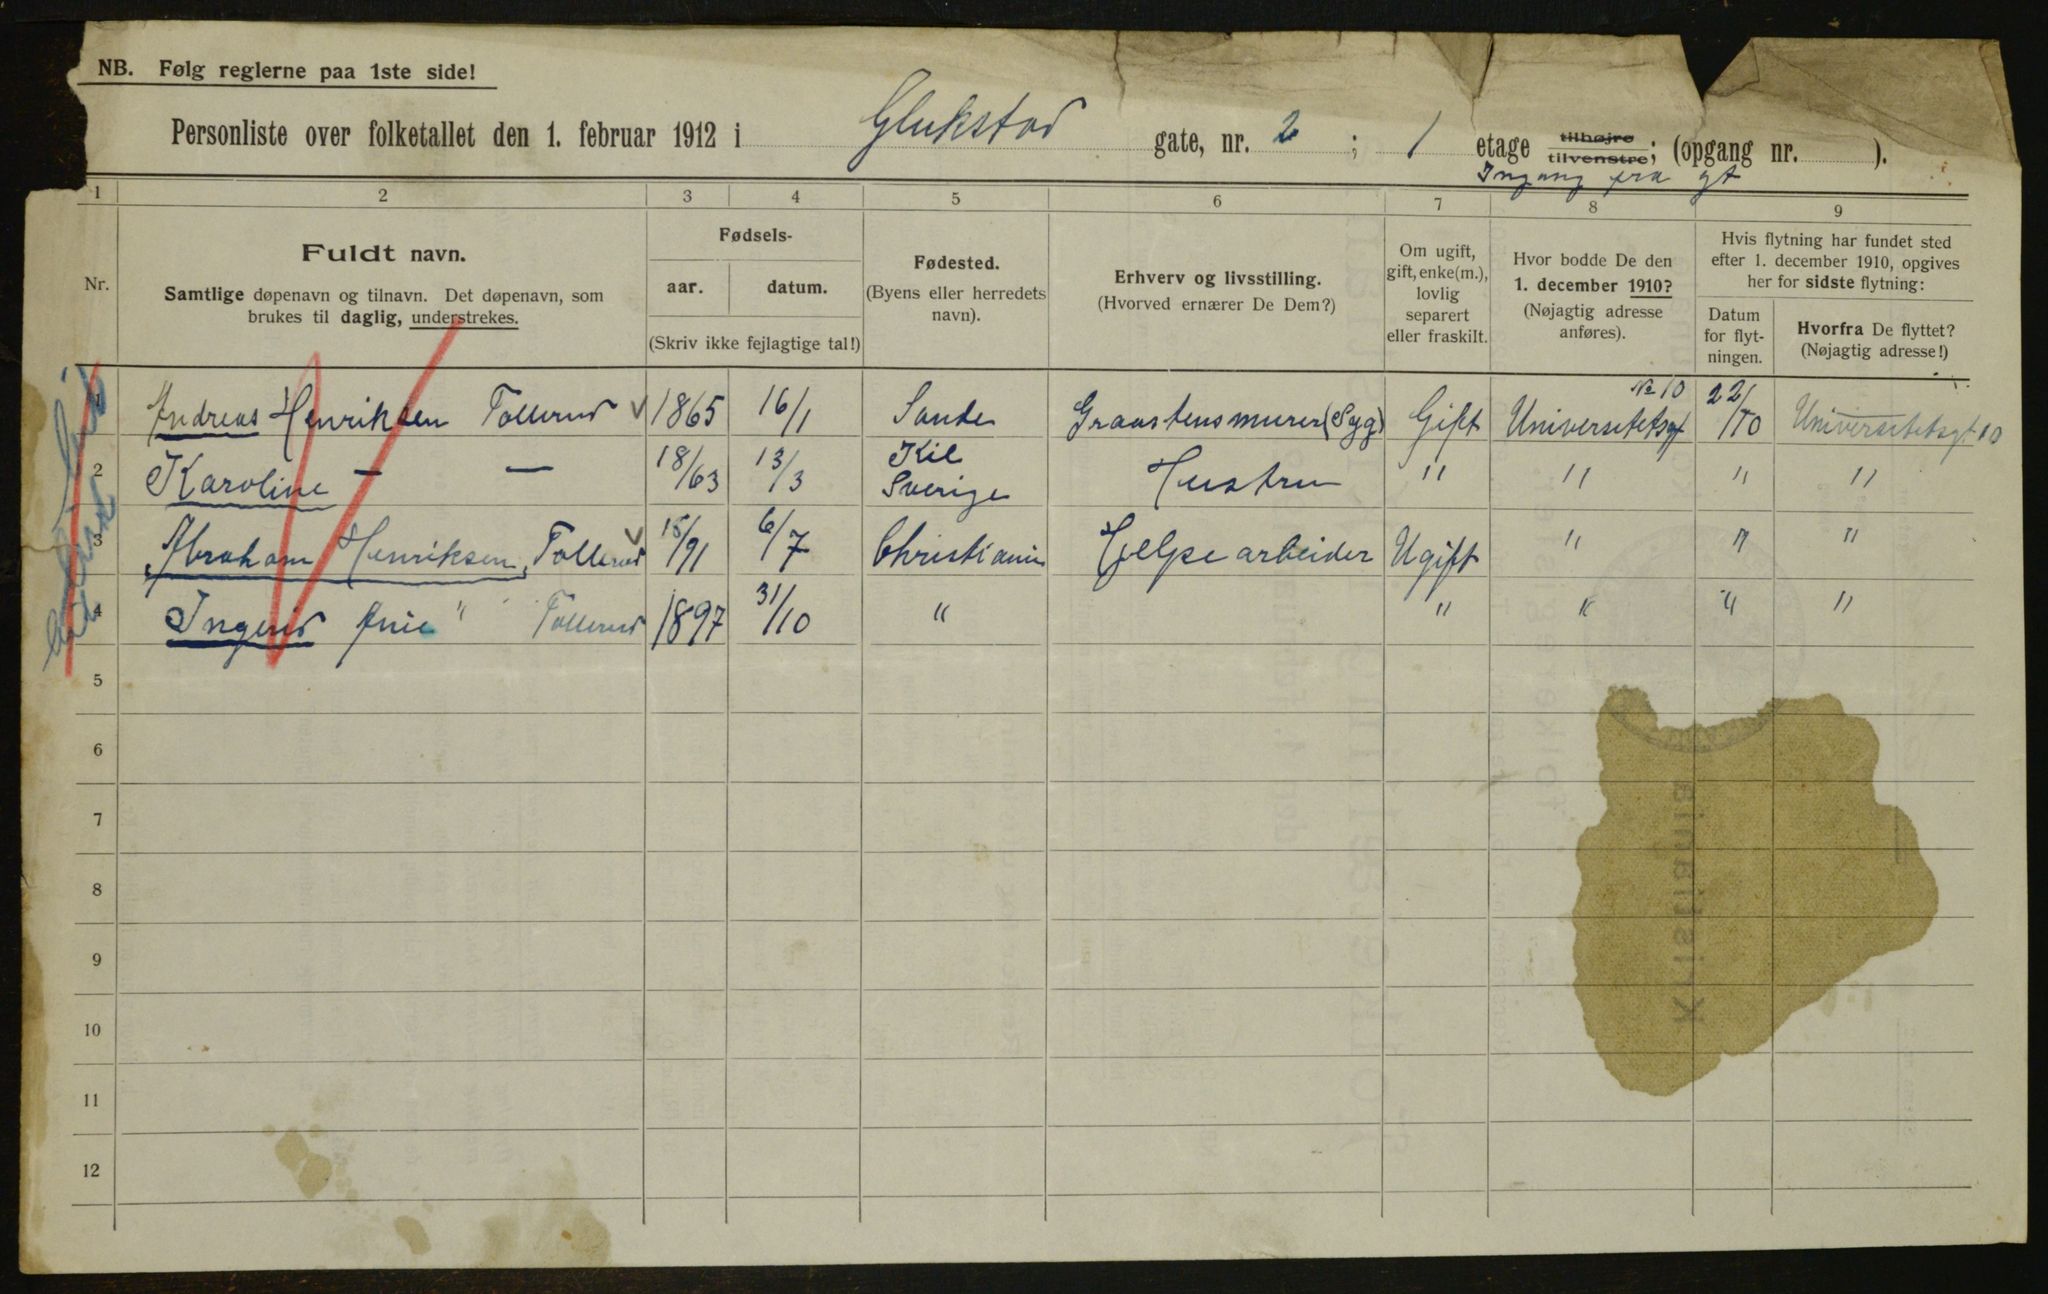 NB. Følg reglerne paa 1ste side!
Personliste over folketallet den 1. februar 1912 i Glukstad gate, nr. 2 ; 1 etage tilhøjre tilvenstre; (opgang nr. ).
Ingang fra gt
1 2 3 4 5 6 7 8 9
Nr.
Fuldt navn.
Samtlige døpenavn og tilnavn. Det døpenavn, som
brukes til daglig, understrekes.
Fødsels-
aar. datum.
(Skriv ikke fejlagtige tal!)
Fødested.
(Byens eller herredets
navn).
Erhverv og livsstilling.
(Hvorved ernærer De Dem?)
Om ugift,
gift, enke(m.),
lovlig
separert
eller fraskilt.
Hvor bodde De den
1. december 1910?
(Nøjagtig adresse
anføres).
Hvis flytning har fundet sted
efter 1. december 1910, opgives
her for sidste flytning:
Datum
for flyt-
ningen.
Hvorfra De flyttet?
(Nøjagtig adresse!)
1 Andreas Henriksen Tollerud 1865 16/1 Sande Graastensmurer (Syg) Gift Universitetsgt No 10 22/10 Universitetsgt 10
2 Karoline — — 18/63 13/3 Kil Sverige Hustru " " " "
3 Abraham Henriksen Tollerud 18/91 6/7 Christiania Hjelpearbeider Ugift " " "
4 Ingerid " Tollerud 1897 31/10 " " " " "
5
6
7
8
9
10
11
12
Kristiania